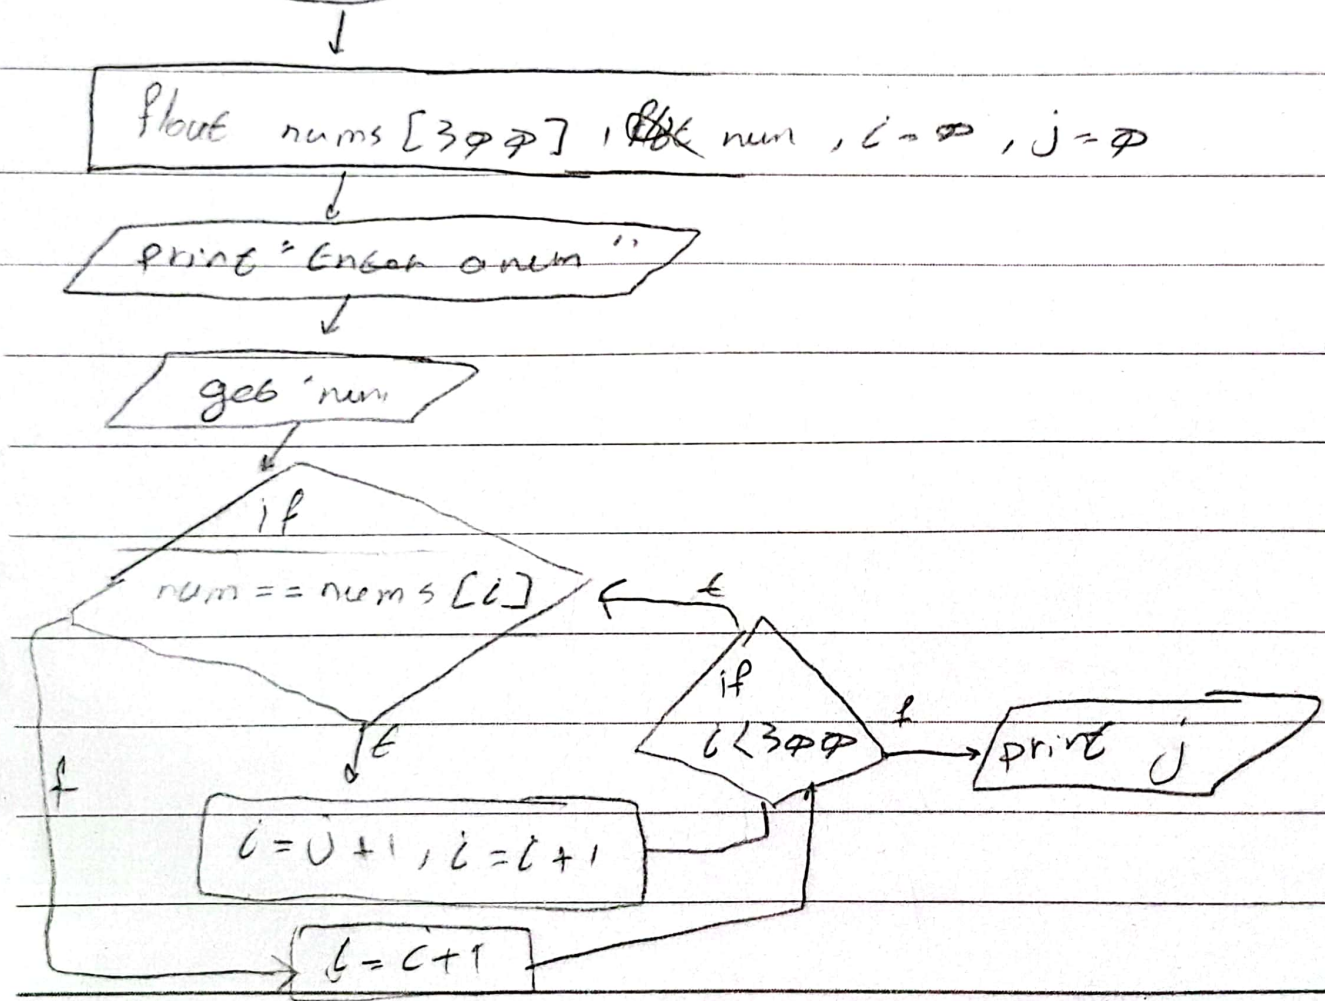 float nums [300] , num , i = 0 , j = 0
print "Enter a num"
get num
if
num == nums [i]
t
if
i < 300
f
print j
t
f
i = j + 1 , i = i + 1
i = i + 1